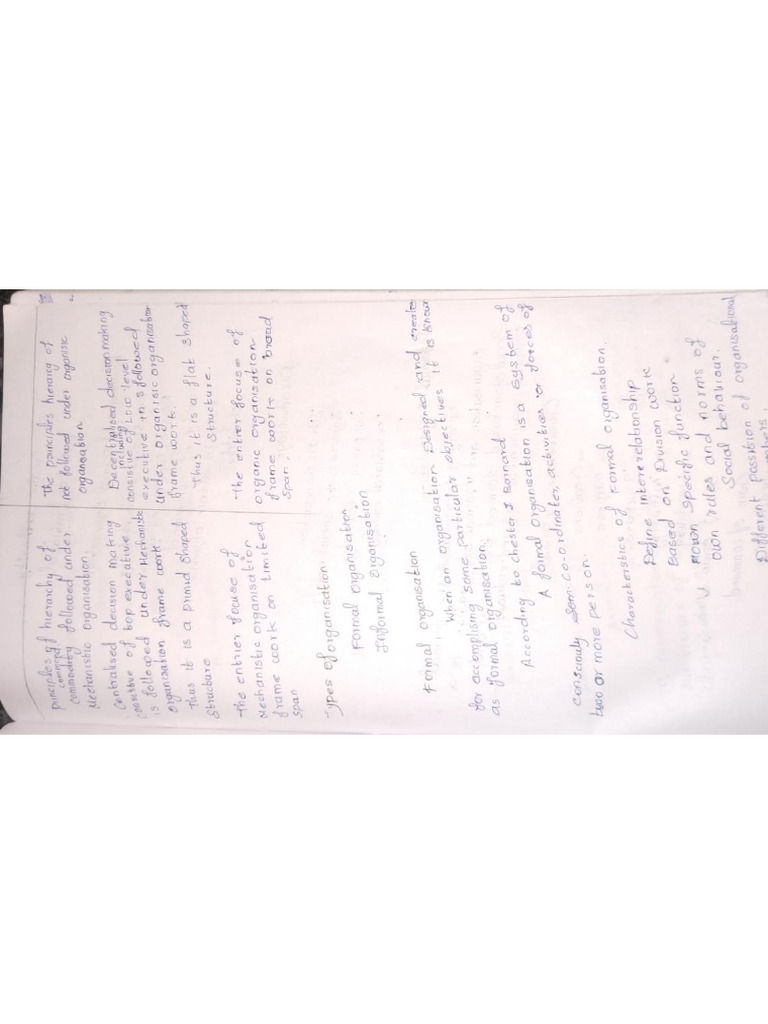 principles of hierarchy of
commerc
commodity followed under
Mechanistic Organisation.
Centralised decision making
consitue of top executive
is followed under Mechanistic
organisation frame work
Thus it is a primid shaped
Structure
The entrier focuse of
Mechanistic organisation
frame work on limited
span
The principles hierarcy of
not followed under organistic
organisation
Decentralised decision making
including
consistue of Low level
executive in s followed
under organisic organisation
frame work.
Thus it is a flat shaped
Structure.
The entier focuse of
organic organisation
frame work on broad
span.
Types of organisation
Formal organisation
Informal organisation
Formal organisation
When an organisation Designed and create
for accomplising some particular objectives it is know
as formal organisation.
According to chester I Barnard
A formal organisation is a system of
consciously co-ordinater activities or forces of
two or more person.
Characteristics of Formal organisation.
Define interrelationship
Based on Division work
specific function
own rules and norms of
Social behaviour.
Different possition of organisational